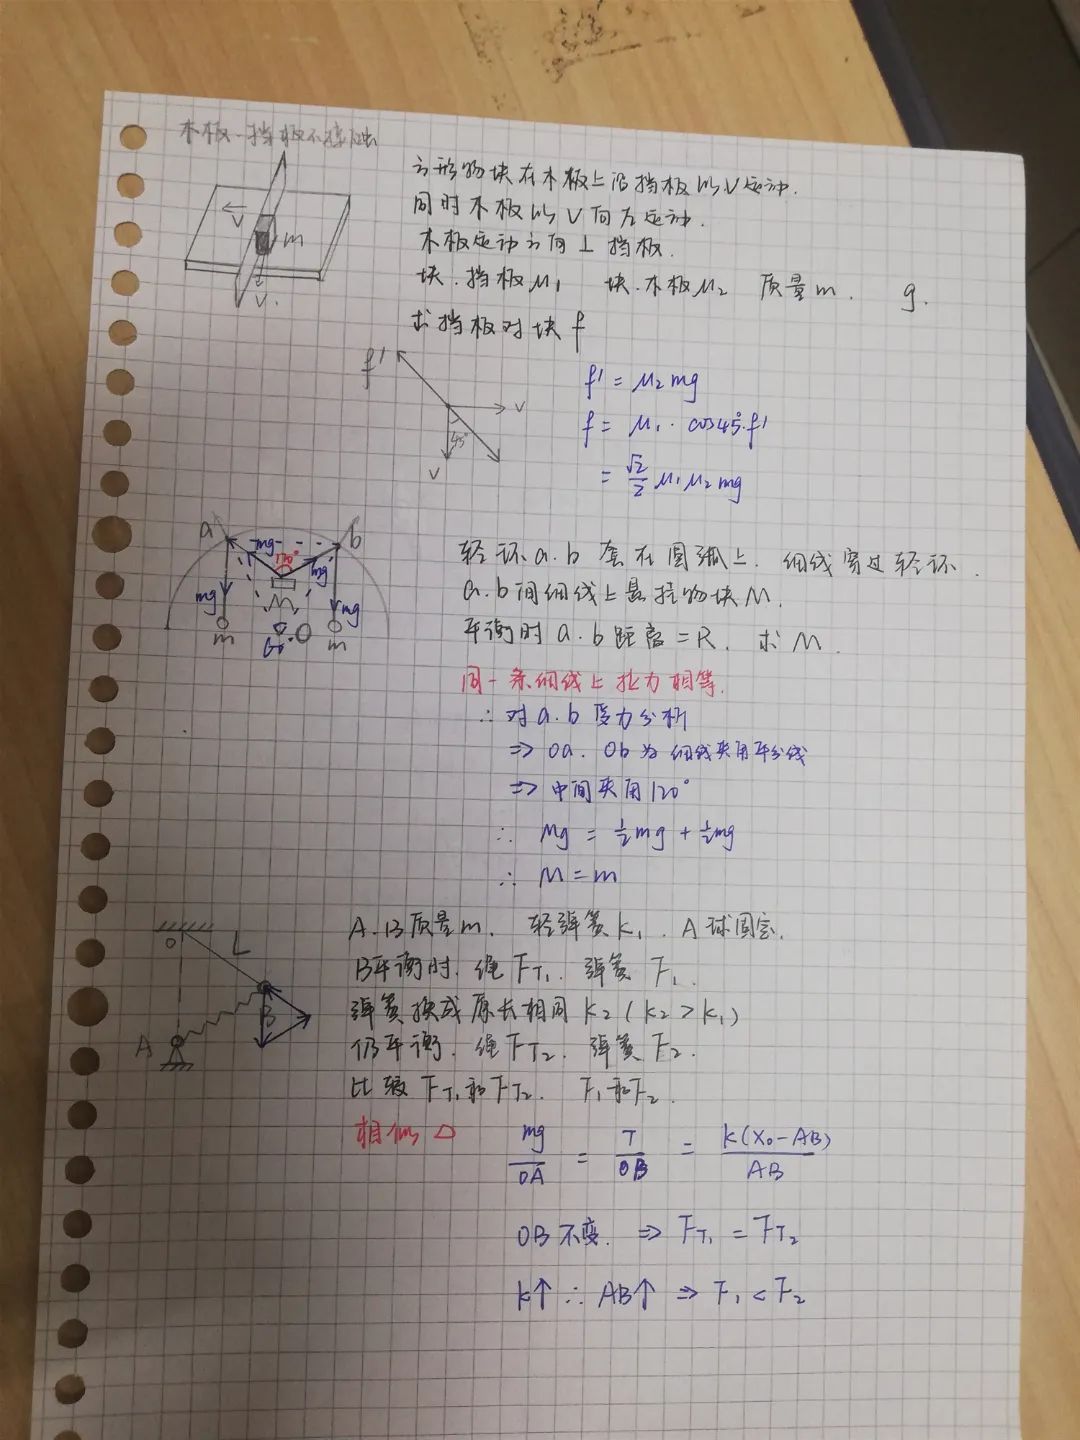 木板.挡板不接触
方形物块在木板上沿挡板以V运动.
同时木板以V向左运动.
木板运动方向⊥挡板.
块.挡板μ₁ 块.木板μ₂ 质量m. g.
求挡板对块f
V
m
V.
f'
V
45°
V
f'=μ₂mg
f=μ₁·cos45°·f'
=√2/2 μ₁μ₂mg
a
b
mg
120°
mg
mg
mg
M
m
m
60°
O
轻环a.b套在圆弧上.细线穿过轻环.
a.b间细线上悬挂物块M.
平衡时a.b距离=R.求M.
同一条细线上拉力相等.
∴对a.b受力分析
⇒Oa.Ob为细线夹角平分线
⇒中间夹角120°
∴Mg=½mg+½mg
∴M=m
O
L
B
A
A.B质量m.轻弹簧k₁.A球固定.
B平衡时.绳FT₁.弹簧F₁.
弹簧换成原长相同k₂(k₂>k₁)
仍平衡.绳FT₂.弹簧F₂.
比较FT₁和FT₂. F₁和F₂.
相似△
mg/OA=T/OB=k(x₀-AB)/AB
OB不变.⇒FT₁=FT₂
k↑∴AB↑⇒F₁<F₂